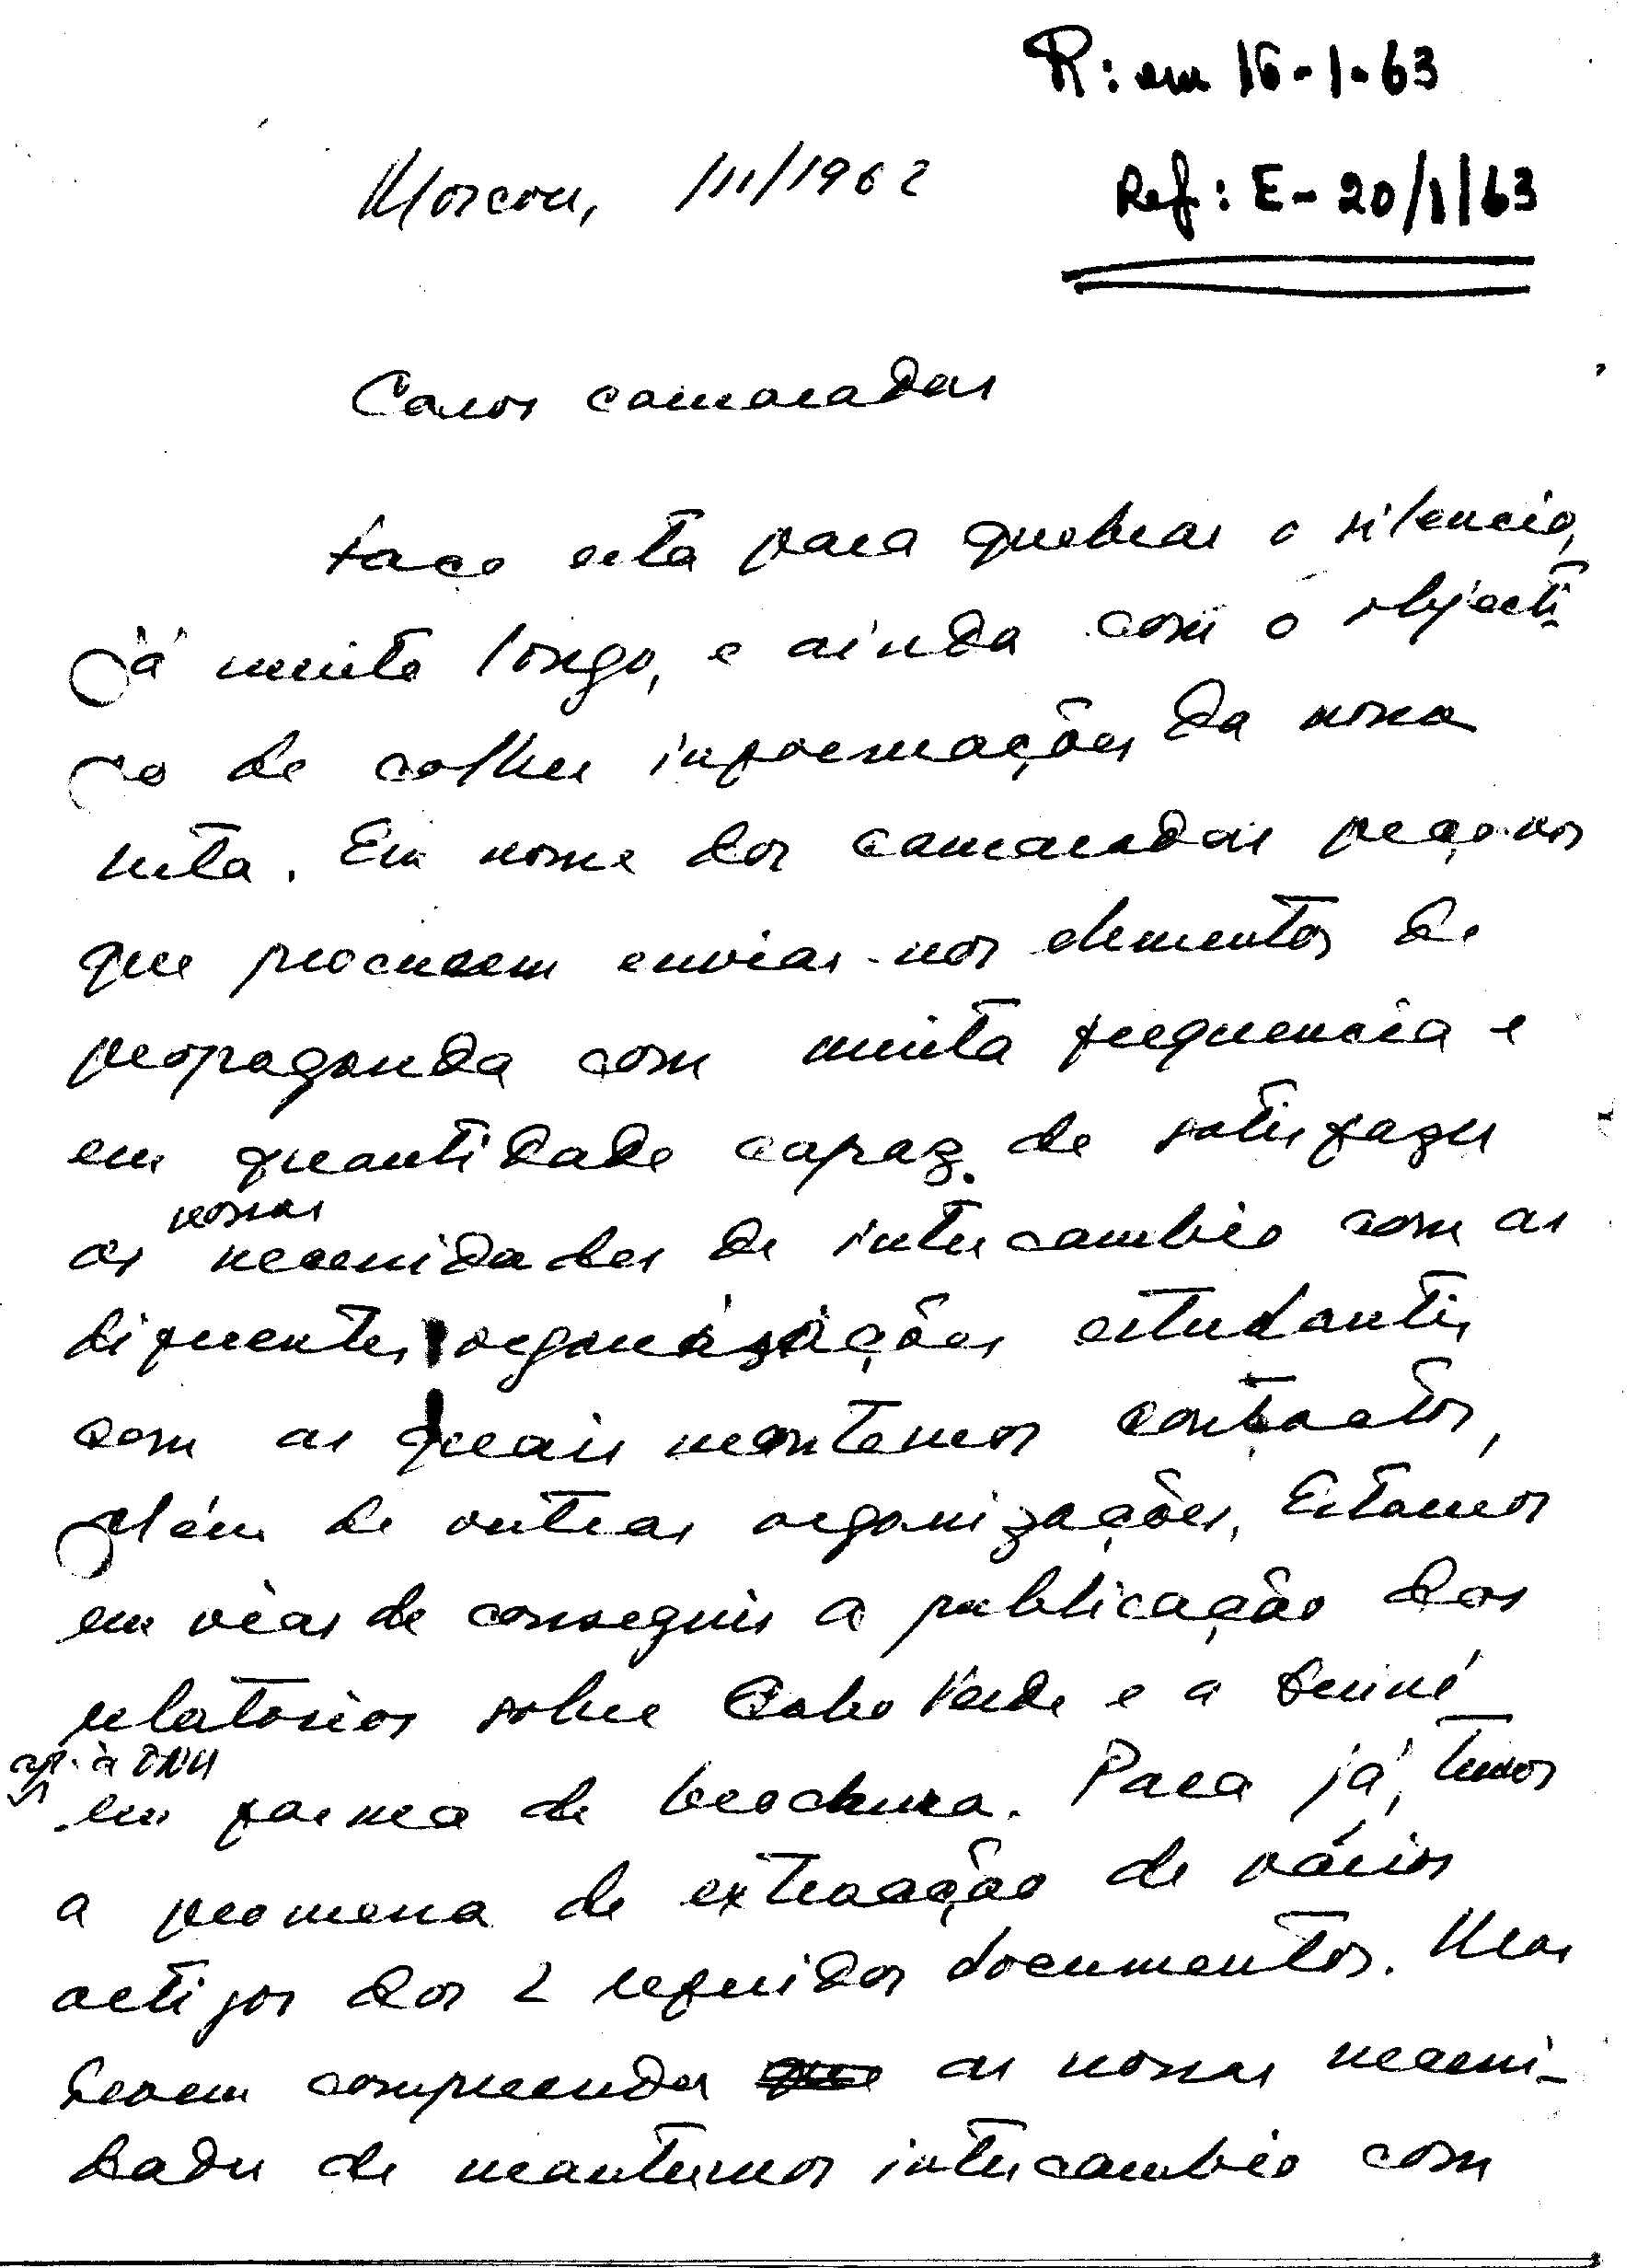 R: em 16-1-63
Moscou, /III/1962
Ref: E-20/1/63
Caros camaradas
Faço esta para quebrar o silencio,
já muito longo, e ainda com o objecti-
vo de colher informações da nossa
luta. Em nome dos camaradas peço-vos
que procurem enviar-nos elementos de
propaganda com muita frequencia e
em quantidade capaz de satisfazer
nossas
as necessidades de intercambio com as
diferentes organizações estudantis
com as quais mantemos contactos,
além de outras organizações. Estamos
em vias de conseguir a publicação dos
relatorios sobre Cabo Verde e a Guiné
à ONU
em forma de brochura. Para já, temos
a promessa de extracção de vários
artigos dos 2 referidos documentos. Mas
devem compreender as nossas necessi-
dades de mantermos intercambio com